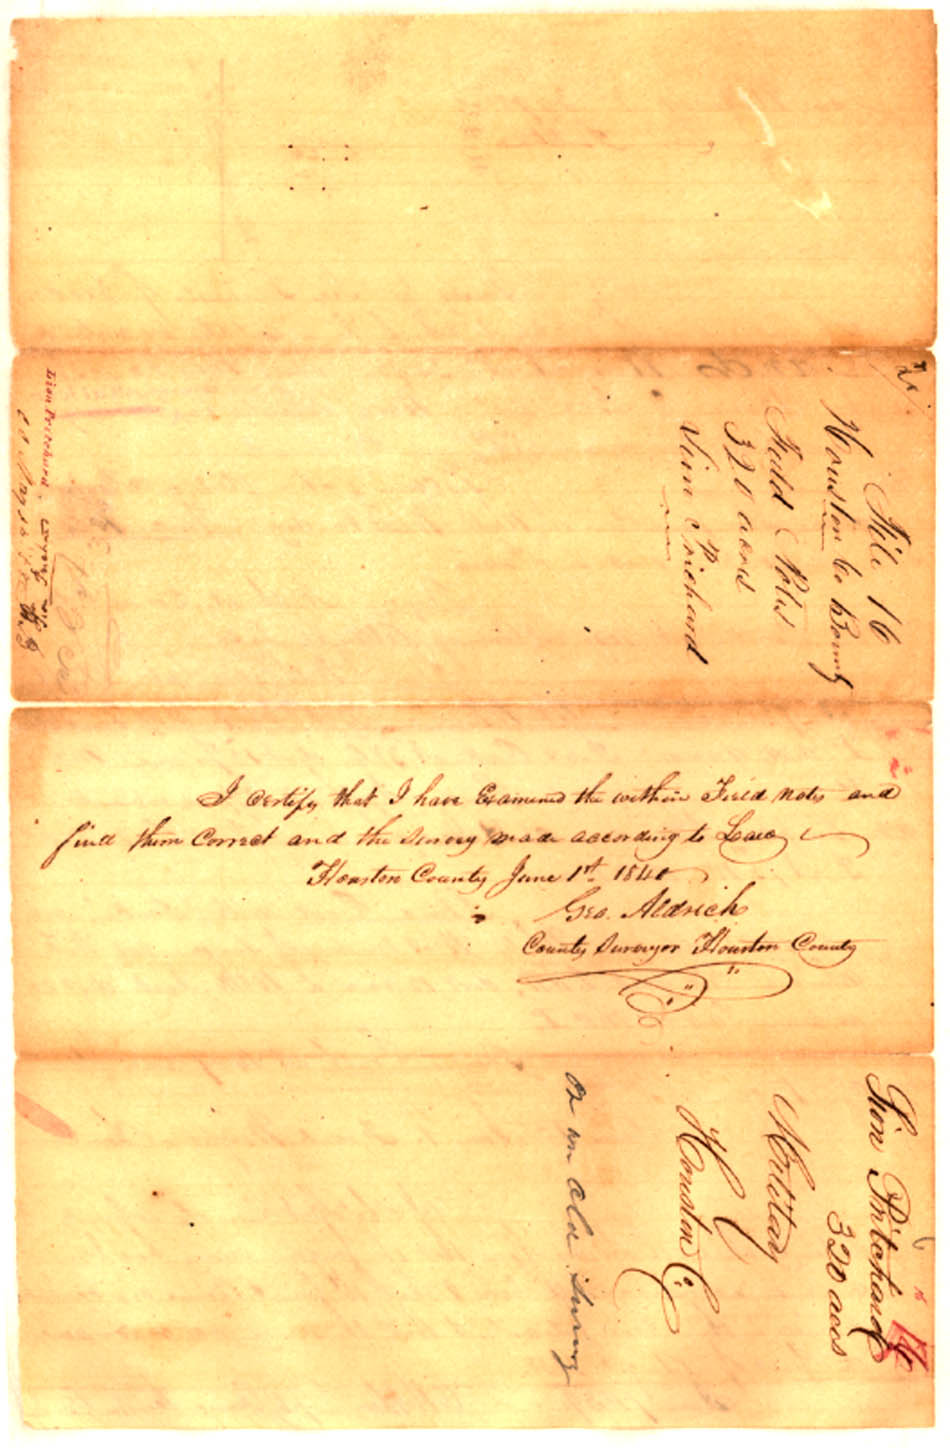 File 16
Houston Co Bounty
Field Notes
320 acres
Sion Prichard
Sion Pritchard
I certify that I have Examined the within Field Notes and
find them Correct and the Survey made according to Law
Houston County June 1st 1840
Geo. Aldrich
County Surveyor Houston County
Sion Pritchard
320 acrs
Military
Houston Co
on an old Survey